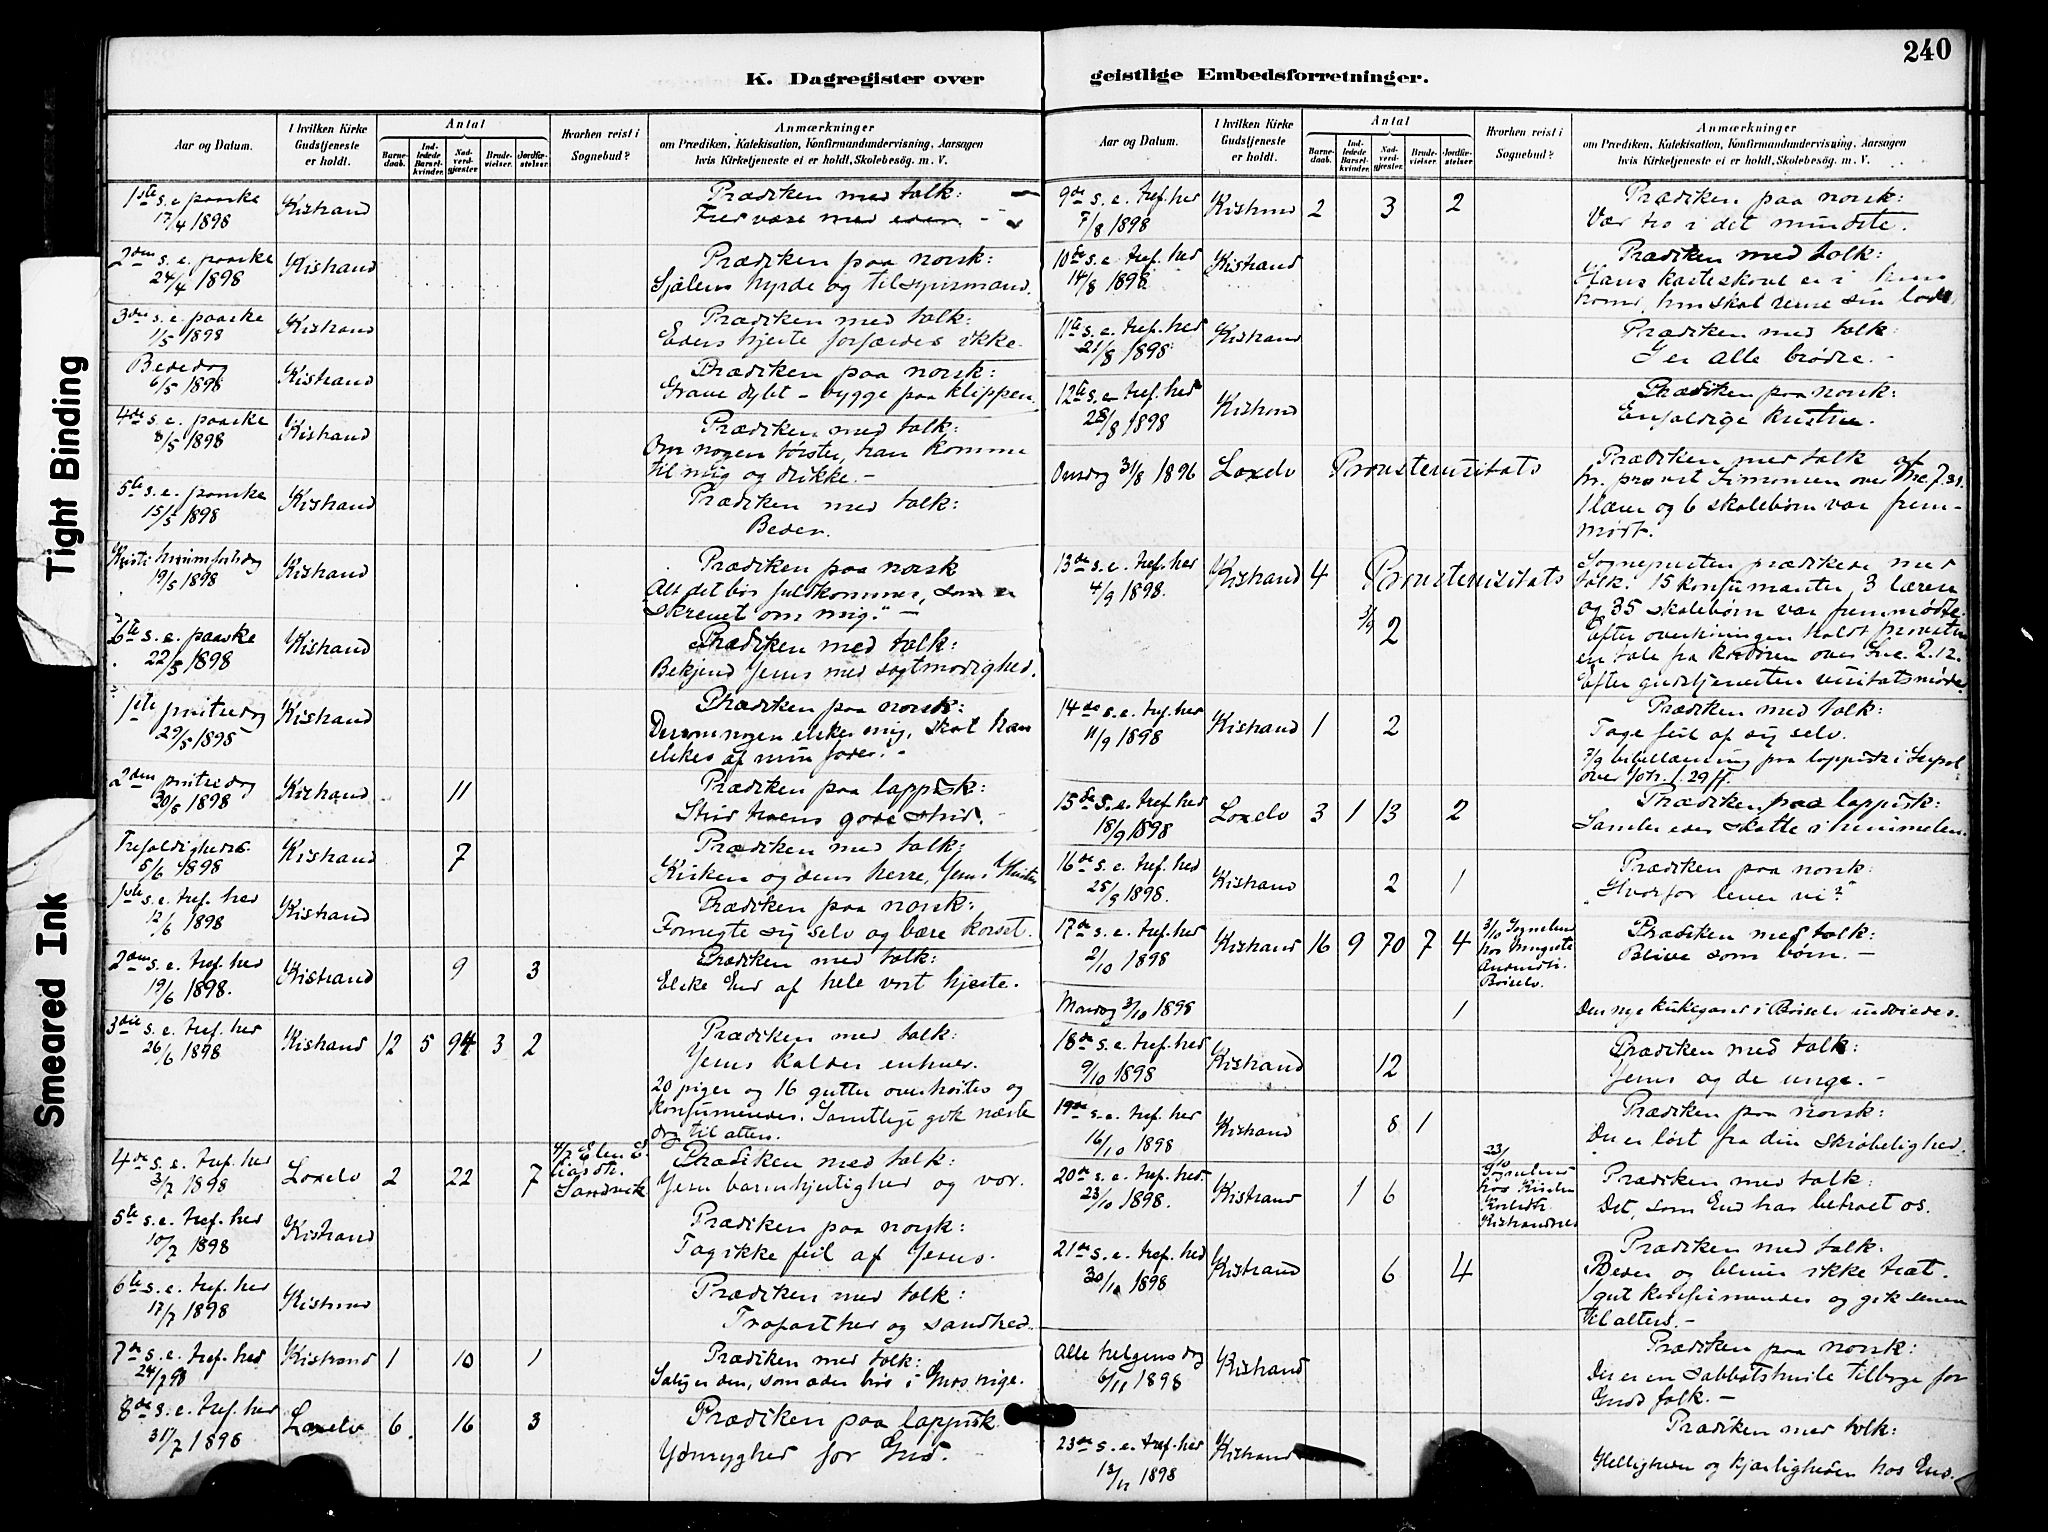 240
Tight Binding
Smeared Ink
K. Dagregister over
geistlige Embedsforretninger.
Aar og Datum.
I hvilken Kirke Gudstjeneste er holdt.
Antal
Barnedaab.
Indledede Barselkvinder.
Nadverdgjæster.
Brudevielser.
Jordfæstelser.
Hvorhen reist i Sognebud?
Anmærkninger
om Prædiken, Katekisation, Konfirmandundervisning, Aarsagen
hvis Kirketjeneste ei er holdt, Skolebesög. m. V.
1ste s. e. paaske Kistrand Prædiken med tolk:
17/4 1898 Fred være med eder.
2den s. e. paaske Kistrand Prædiken paa norsk:
24/4 1898 Sjælens hyrde og tilsynsmand.
3die s. e. paaske Kistrand Prædiken med tolk:
1/5 1898 Eders hjerte forfærdes ikke.
Bededag Kistrand Prædiken paa norsk:
6/5 1898 Grave dybt – bygge paa klippen.
4de s. e. paaske Kistrand Prædiken med tolk:
8/5 1898 Om nogen tørster, han komme
til mig og drikke.–
5te s. e. paaske Kistrand Prædiken med tolk:
15/5 1898 Beder.
Kristi himmelfartsdag Kistrand Prædiken paa norsk
19/5 1898 Alt det bør fuldkommes, som er
skrevet om mig." –
6te s. e. paaske Kistrand Prædiken med tolk:
22/5 1898 Bekjend Jesus med sagtmodighed.
1ste pintsedag Kistrand Prædiken paa norsk:
29/5 1898 Dersom nogen elsker mig, skal han
elskes af min fader.–
2den pintsedag Kistrand 11 Prædiken paa lappisk:
30/5 1898 Strid troens gode strid.
Trefoldigheds Kistrand 7 Prædiken med tolk:
5/6 1898 Kirken og dens herre, Jesus Kristus
1ste s. e. tref. hed Kistrand Prædiken paa norsk:
12/6 1898 Fornegte sig selv og bære korset.
2den s. e. tref. hed Kistrand 9 3 Prædiken med tolk:
19/6 1898. Elske Gud af hele vort hjerte.
3die s. e. tref. hed Kistrand 12 5 94 3 2 Prædiken med tolk:
26/6 1898 Jesus kalder enhver.
20 piger og 16 gutter overhørtes og
konfirmeredes. Samtlige gik næste
dag til alters.
4de s. e. tref. hed Loxelv 2 22 7 4/7 Elen Sandvik Prædiken med tolk:
3/7 1898 Jesu barmhjertighed og vor.
5te s. e. tref. hed Kistrand Prædiken paa norsk:
10/7 1898 Tag ikke feil af Jesus.
6te s. e. tref. hed Kistrand Prædiken med tolk:
17/7 1898 Trofasthed og sandhed.
7de s. e. tref. hed Kistrand 1 10 1 Prædiken med tolk:
24/7 98 Salig er den, som æder brød i Guds rige.
8de s. e. tref. hed Loxelv 6 16 3 Prædiken paa lappisk
31/7 1898 Ydmyghed for Gud.
Aar og Datum.
I hvilken Kirke Gudstjeneste er holdt.
Antal
Barnedaab.
Indledede Barselkvinder.
Nadverdgjæster.
Brudevielser.
Jordfæstelser.
Hvorhen reist i Sognebud?
Anmærkninger
om Prædiken, Katekisation, Konfirmandundervisning, Aarsagen
hvis Kirketjeneste ei er holdt, Skolebesög. m. V.
9de s. e. tref. hed Kistrand 2 3 2 Prædiken paa norsk:
7/8 1898 Vær tro i det mindste.
10de s. e. tref. hed Kistrand Prædiken med tolk:
14/8 1898 Hans kasteskovl er i hans
haand, han skal rense sin lo
11te s. e. tref. hed Kistrand Prædiken med tolk:
21/8 1898 I er alle brødre.–
12te s. e. tref. hed Kistrand Prædiken paa norsk:
28/8 1898 Enfoldige kristne.
Onsdag 31/8 1896 Loxelv Provstevisitats Prædiken med tolk af
hr. provst Simonsen over Mrc. 7.31.
1 lærer og 6 skolebørn var frem-
mødt.
13de s. e. tref. hed Kistrand 4 Provstevisitats Sognepresten prædikede med
4/9 1898. tolk. 15 konfirmanter, 3 lærere
3/9 2 og 35 skolebørn var fremmødte.
Efter overhøringen holdt provsten
en tale fra kordøren over Luc. 2.12.
Efter gudstjenesten visitatsmøde
14de s. e. tref. hed Kistrand 1 2 Prædiken med tolk:
11/9 1898 Tage feil af sig selv.
7/9 bibellæsning paa lappisk i
over Joh. 1. 29 ff.
15de s. e. tref. hed Loxelv 3 1 13 2 Prædiken paa lappisk:
18/9 1898 Samler eder skatte i himmelen.
16de s. e. tref. hed Kistrand 2 1 Prædiken paa norsk:
25/9 1898. "Hvorfor lever vi?"
17de s. e. tref. hed Kistrand 16 9 70 7 4 3/10 Sognebud hos Børselv. Prædiken med tolk:
2/10 1898 Blive som børn.–
Mandag 3/10 1898 1 Den nye kirkegaard i Børselv indviedes.
18de s. e. tref. hed Kistrand 12 Prædiken med tolk:
9/10 1898 Jesus og de unge.–
19de s. e. tref. hed Kistrand 8 1 Prædiken paa norsk:
16/10 1898 Du er løst fra din skrøbelighed.
20de s. e. tref. hed. Kistrand 1 6 23/10 Sognebud hos Prædiken med tolk:
23/10 1898. Det, som Gud har betroet os.
21de s. e. tref. hed Kistrand 6 4 Prædiken med tolk:
30/10 1898 Beder og bliver ikke træt.
1 gut konfirmeredes og gik senere
til alters.–
Alle helgens dag Kistrand Prædiken paa norsk:
6/11 1898 Der er en sabbatshvile tilbage for
Guds folk.–
23de s. e. tref. hed Kistrand Prædiken med tolk:
13/11 1898 Helligheden og kjærligheden hos Gud.